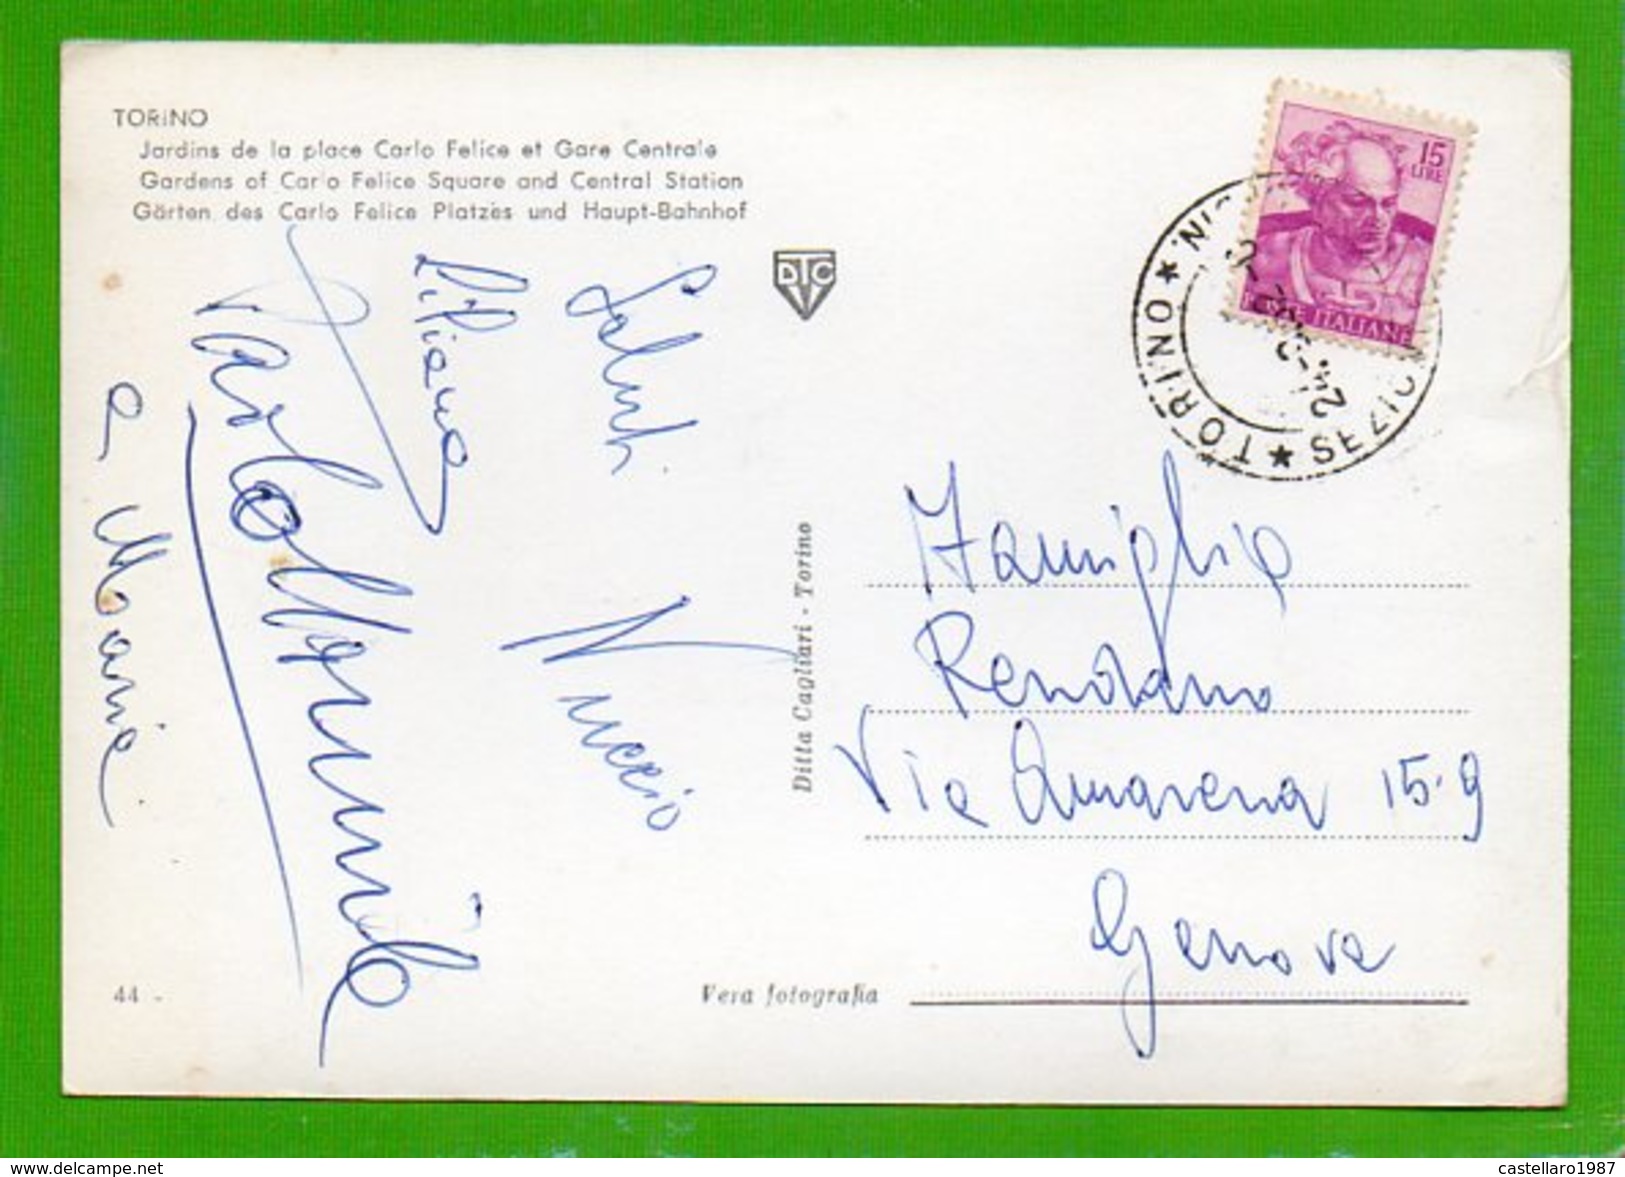 TORINO
Jardins de la place Carlo Felice et Gare Centrale
Gardens of Carlo Felice Square and Central Station
Gärten des Carlo Felice Platzes und Haupt-Bahnhof
DTC
15
LIRE
POSTE ITALIANE
TORINO ★
★ SEZIO
Saluti
Nuccio
Liliana
e Maria
Ditta Cagliari - Torino
Famiglia
Rendano
Via Amarena 15-9
Genova
44 -
Vera fotografia
www.delcampe.net
castellaro1987